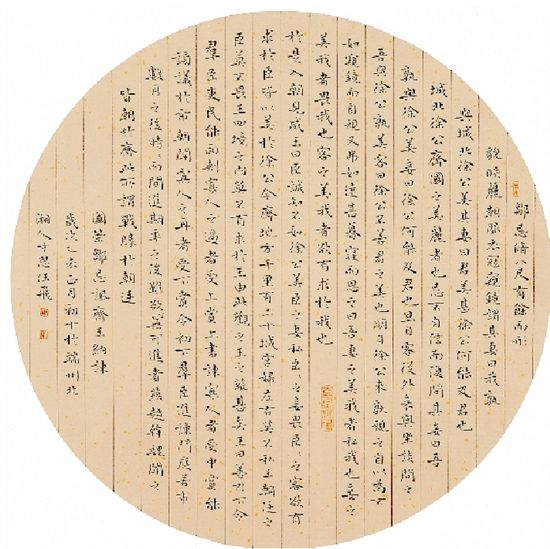 鄒忌脩八尺有餘而形
貌昳麗朝服衣冠窺鏡謂其妻曰我孰
與城北徐公美其妻曰君美甚徐公何能及君也
城北徐公齊國之美麗者也忌不自信而復問其妾曰吾
孰與徐公美妾曰徐公何能及君也旦日客從外來與坐談問之
吾與徐公孰美客曰徐公不若君之美也明日徐公來孰視之自以為不
如窺鏡而自視又弗如遠甚暮寢而思之曰吾妻之美我者私我也妾之
美我者畏我也客之美我者欲有求於我也
於是入朝見威王曰臣誠知不如徐公美臣之妻私臣臣之妾畏臣臣之客欲有
求於臣皆以美於徐公今齊地方千里百二十城宮婦左右莫不私王朝廷之
臣莫不畏王四境之內莫不有求於王由此觀之王之蔽甚矣王曰善乃下令
羣臣吏民能面刺寡人之過者受上賞上書諫寡人者受中賞能
謗議於市朝聞寡人之耳者受下賞令初下羣臣進諫門庭若市
數月之後時時而間進期年之後雖欲言無可進者燕趙韓魏聞之
皆朝於齊此所謂戰勝於朝廷
國策鄒忌諷齊王納諫
歲次亥月初十於州北
湘人飛